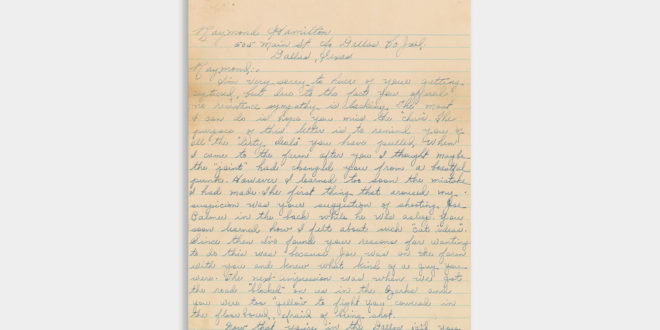 Raymond Hamilton
505 Main St. c/o Dallas Co Jail
Dallas, Texas
Raymond:-
I'm very sorry to hear of your getting
captured, but due to the fact you offered
no resistence sympathy is lacking. The most
I can do is hope you miss the "chair." The
purpose of this letter is to remind you of
all the "dirty deals" you have pulled. When
I came to the farm after you I thought maybe
the "joint" had changed you from a boastful
punk. However I learned too soon the mistake
I had made. The first thing that aroused my
suspicion was your suggestion of shooting Joe
Palmer in the back while he was asleep. You
soon learned how I felt about such "cat ideas".
Since then I've found your reasons for wanting
to do this was because Joe was on the farm
with you and knew what kind of a guy you
were. The next impression was when we got
the road "blocked" on us in the Ozarks and
you were too "yellow" to fight. You cowered in
the floorboard, afraid of being shot.
Now that you're in the Dallas jail you